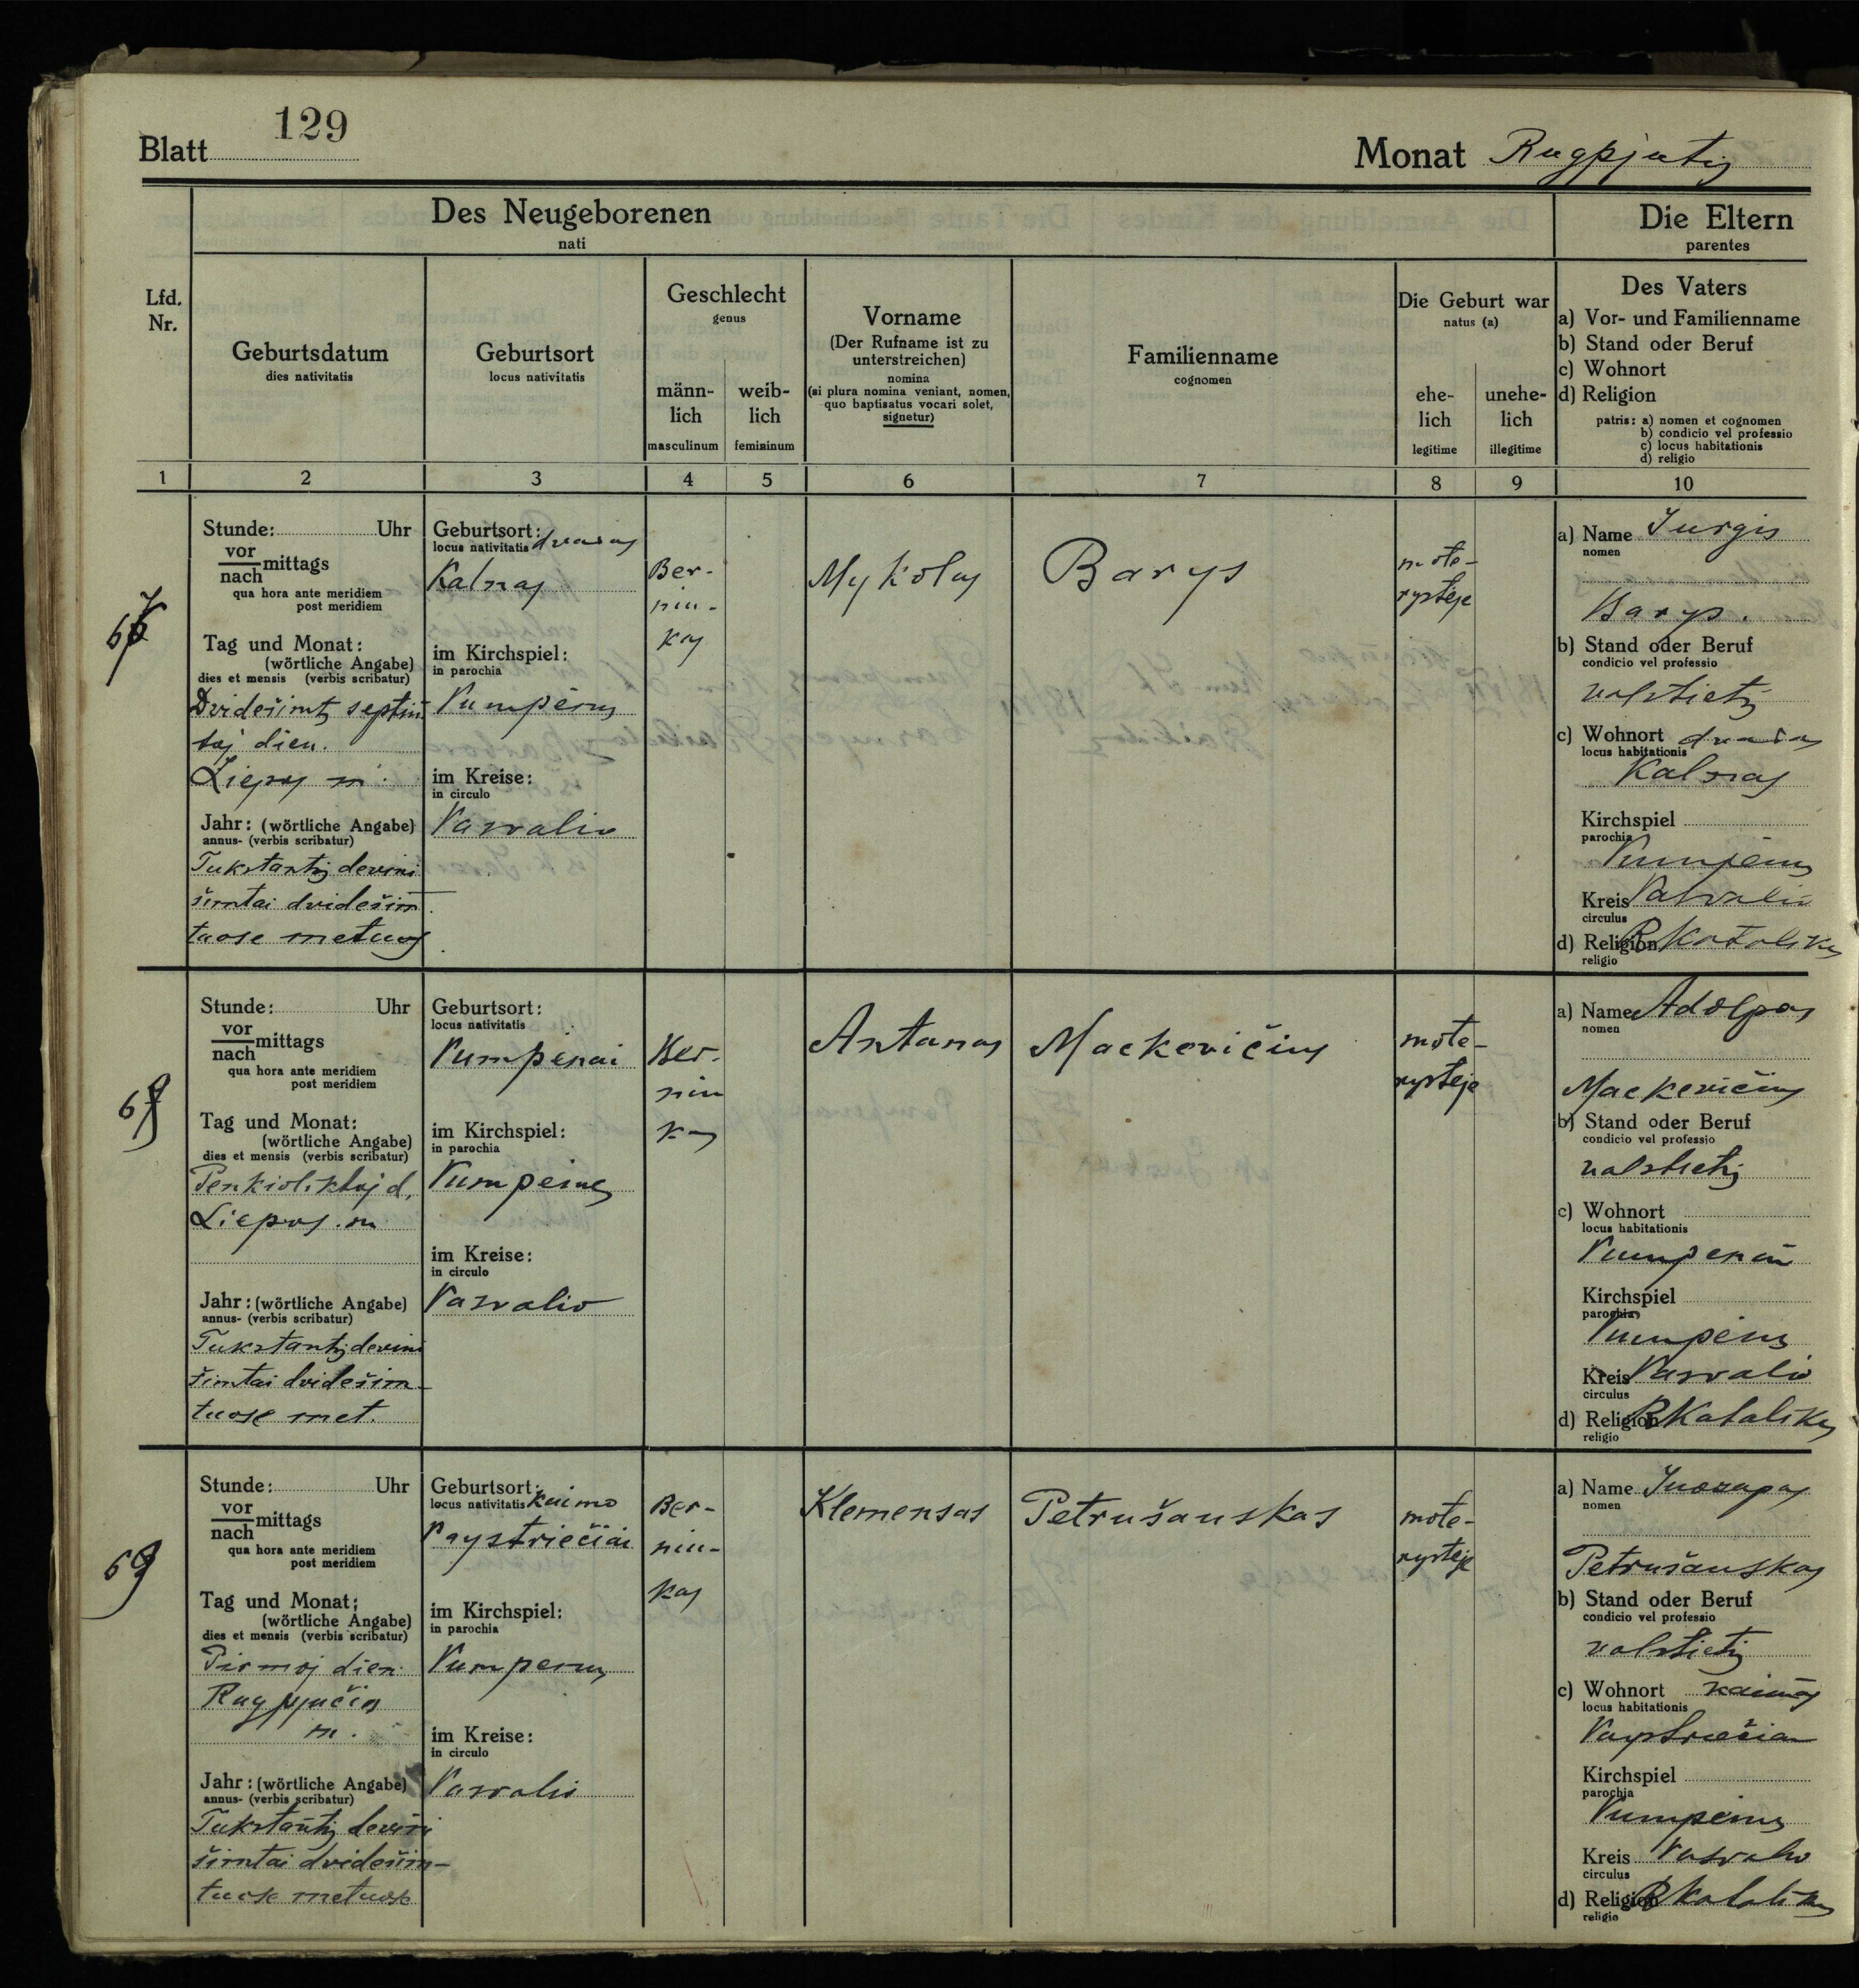 129
Blatt
Monat Rugpjutis
Des Neugeborenen
nati
Die Eltern
parentes
Lfd.
Nr.
Geburtsdatum
dies nativitatis
Geburtsort
locus nativitatis
Geschlecht
genus
männ-
lich
masculinum
weib-
lich
femininum
Vorname
(Der Rufname ist zu
unterstreichen)
nomina
(si plura nomina veniant, nomen,
quo baptisatus vocari solet,
signetur)
Familienname
cognomen
Die Geburt war
natus (a)
ehe-
lich
legitime
unehe-
lich
illegitime
Des Vaters
a) Vor- und Familienname
b) Stand oder Beruf
c) Wohnort
d) Religion
patris: a) nomen et cognomen
b) condicio vel professio
c) locus habitationis
d) religio
1 2 3 4 5 6 7 8 9 10
67
Stunde: Uhr
vor
nach mittags
qua hora ante meridiem
post meridiem
Tag und Monat:
(wörtliche Angabe)
dies et mensis (verbis scribatur)
Dvidešimts septin
taj dien.
Liepos m.
Jahr: (wörtliche Angabe)
annus- (verbis scribatur)
Tukstantis devini
šimtai dvidešim
tuose metuos
Geburtsort:
locus nativitatis dvaras
Kalnas
im Kirchspiel:
in parochia
Pumpėnų
im Kreise:
in circulo
Pasvalio
Ber-
niu-
kas
Mykolas
Barys
mote-
rystėje
a) Name Jurgis
nomen
Barys.
b) Stand oder Beruf
condicio vel professio
valstietis
c) Wohnort dvaras
locus habitationis
Kalnas
Kirchspiel
parochia
Pumpėnų
Kreis Pasvalio
circulus
d) Religion R Katalikų
religio
68
Stunde: Uhr
vor
nach mittags
qua hora ante meridiem
post meridiem
Tag und Monat:
(wörtliche Angabe)
dies et mensis (verbis scribatur)
Penkioliktaj d,
Liepos. m
Jahr: (wörtliche Angabe)
annus- (verbis scribatur)
Tukstantis devini
šimtai dvidešim-
tuose met.
Geburtsort:
locus nativitatis
Pumpėnai
im Kirchspiel:
in parochia
Pumpėnų
im Kreise:
in circulo
Pasvalio
Ber-
niu
kas
Antanas
Mackevičius
mote-
rystėje
a) Name Adolpas
nomen
Mackevičius
b) Stand oder Beruf
condicio vel professio
valstietis
c) Wohnort
locus habitationis
Pumpėnai
Kirchspiel
parochia
Pumpėnų
Kreis Pasvalio
circulus
d) Religion R Katalikų
religio
69
Stunde: Uhr
vor
nach mittags
qua hora ante meridiem
post meridiem
Tag und Monat:
(wörtliche Angabe)
dies et mensis (verbis scribatur)
Pirmoj dien.
Rugpjučio
m.
Jahr: (wörtliche Angabe)
annus- (verbis scribatur)
Tukstantis devini
šimtai dvidešim-
tuose metuose
Geburtsort:
locus nativitatis kaimo
Paystriečiai
im Kirchspiel:
in parochia
Pumpenų
im Kreise:
in circulo
Pasvalio
Ber-
niu-
kas
Klemensas
Petrušauskas
mote-
rystėje
a) Name Juozapas
nomen
Petrušauskas
b) Stand oder Beruf
condicio vel professio
valstietis
c) Wohnort kaimas
locus habitationis
Paystriečiai
Kirchspiel
parochia
Pumpėnų
Kreis Pasvalio
circulus
d) Religion R Katalikų
religio